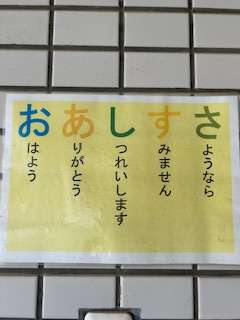 おはよう
ありがとう
しつれいします
すみません
さようなら